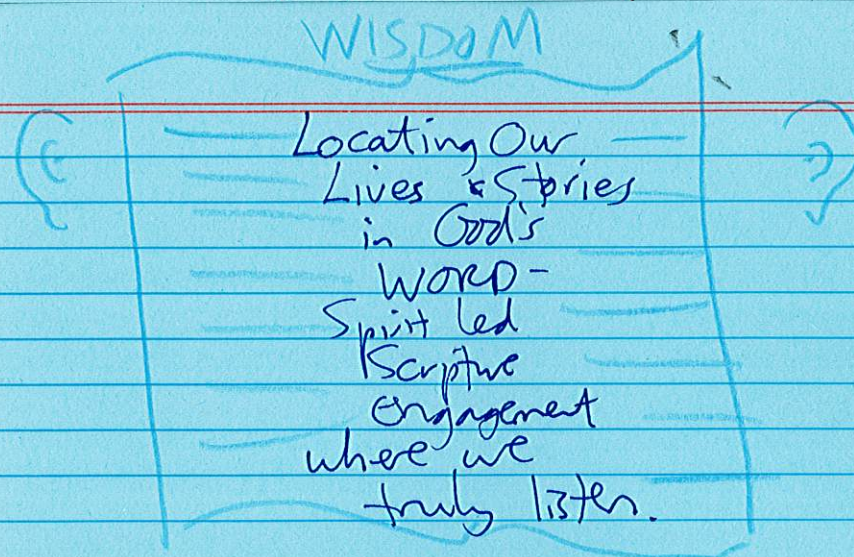 WISDOM
Locating Our
Lives & Stories
in God's
WORD-
Spirit led
Scripture
engagement
where we
truly listen.